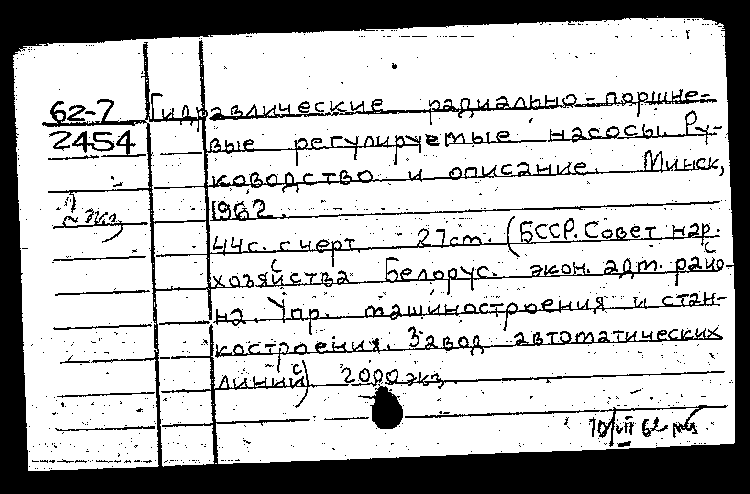 62-7 Гидравлические радиально=поршне-
2454 вые регулируемые насосы. Ру-
ководство и описание. Минск,
2 экз
1962.
44с. с черт. 27ст. (БССР. Совет нар.
хозяйства Белорус. экон. адт. райо-
на. Упр. машиностроения и стан-
костроения. Завод автоматических
линий). 2000экз.
10/VII 62